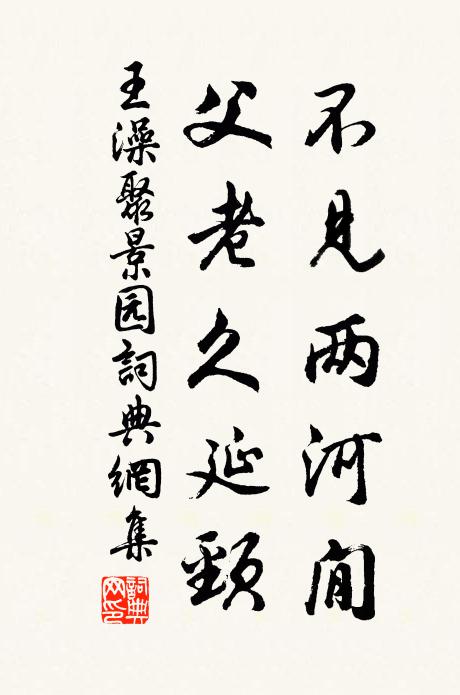 不見两河間
父老久延頸
王澡聚景园詞典網集
詞典
网印